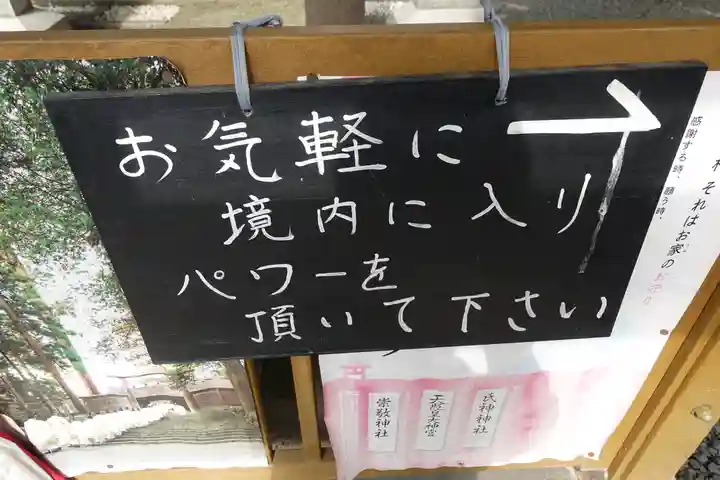 お気軽に
境内に入り
パワーを
頂いて下さい
感謝する時、願う時、
それはお家の
お守り
氏神神社
天照皇大神宮
崇敬神社